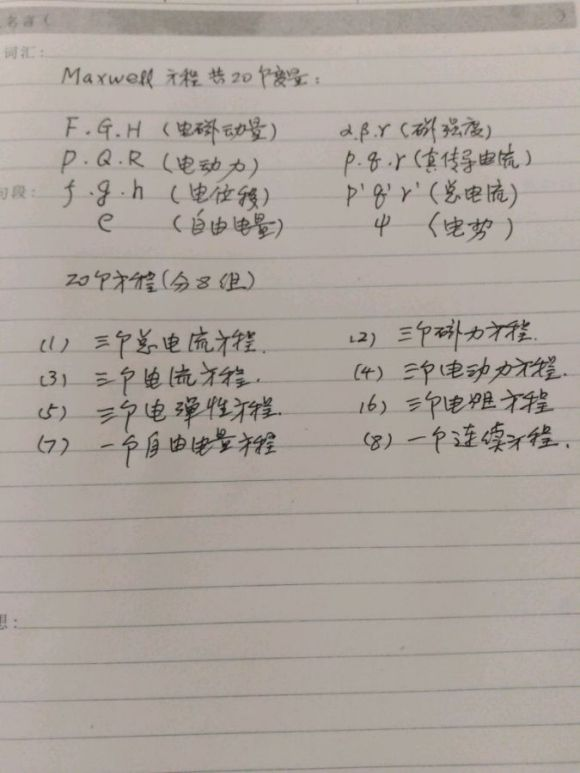 名言（
）
词汇：
Maxwell 方程共20个变量：
F.G.H（电磁动量） α.β.γ（磁强度）
P.Q.R（电动力） p.q.r（真传导电流）
f.g.h（电位移） p'q'r'（总电流）
e（自由电量） ψ（电势）
句段：
20个方程（分8组）
(1) 三个总电流方程. (2) 三个磁力方程.
(3) 三个电流方程. (4) 三个电动力方程.
(5) 三个电弹性方程. (6) 三个电阻方程
(7) 一个自由电量方程 (8) 一个连续方程.
想：